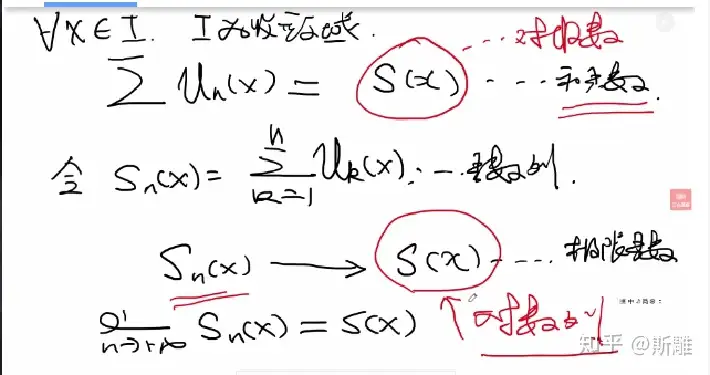 ∀x∈I. I为收敛域. ...对级数
∑ Un(x) = S(x) ...和函数.
令 Sn(x) = ∑_{k=1}^{n} Uk(x). ... 函数列.
Sn(x) → S(x) ... 极限函数
lim_{n→+∞} Sn(x) = S(x) ↑对函数列
知乎 @斯雕